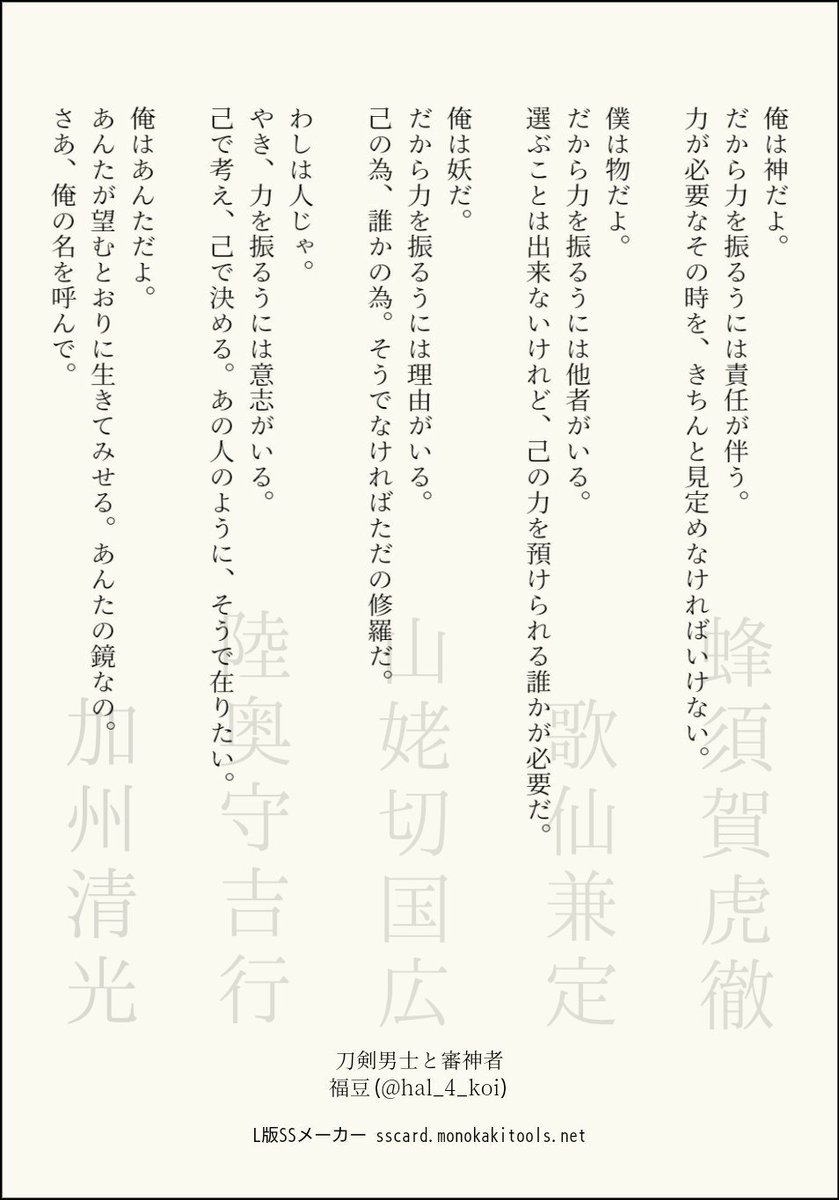 俺は神だよ。
だから力を振るうには責任が伴う。
力が必要なその時を、きちんと見定めなければいけない。
蜂須賀虎徹
僕は物だよ。
だから力を振るうには他者がいる。
選ぶことは出来ないけれど、己の力を預けられる誰かが必要だ。
歌仙兼定
俺は妖だ。
だから力を振るうには理由がいる。
己の為、誰かの為。そうでなければただの修羅だ。
山姥切国広
わしは人じゃ。
やき、力を振るうには意志がいる。
己で考え、己で決める。あの人のように、そうで在りたい。
陸奥守吉行
俺はあんただよ。
あんたが望むとおりに生きてみせる。あんたの鏡なの。
さあ、俺の名を呼んで。
加州清光
刀剣男士と審神者
福豆(@hal_4_koi)
L版SSメーカー sscard.monokakitools.net